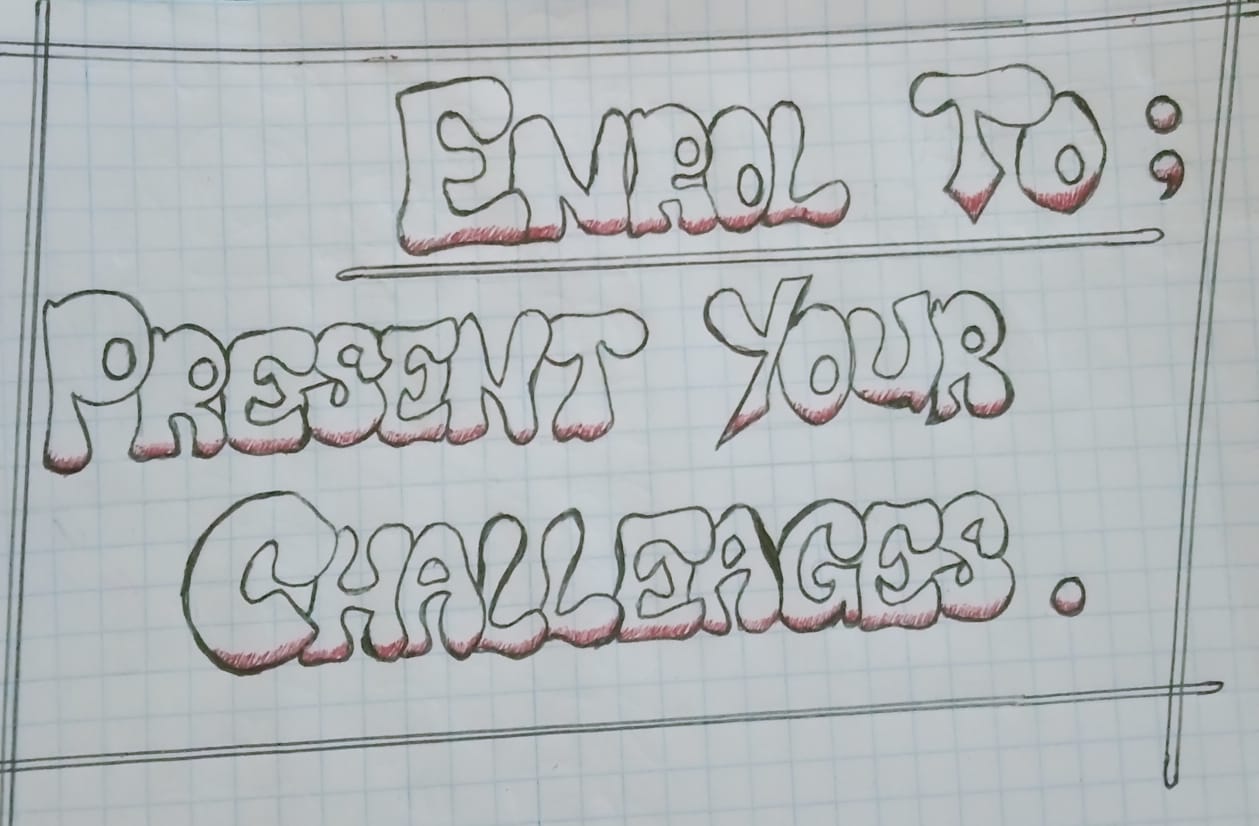 ENROL TO;
PRESENT YOUR
CHALLEAGES.